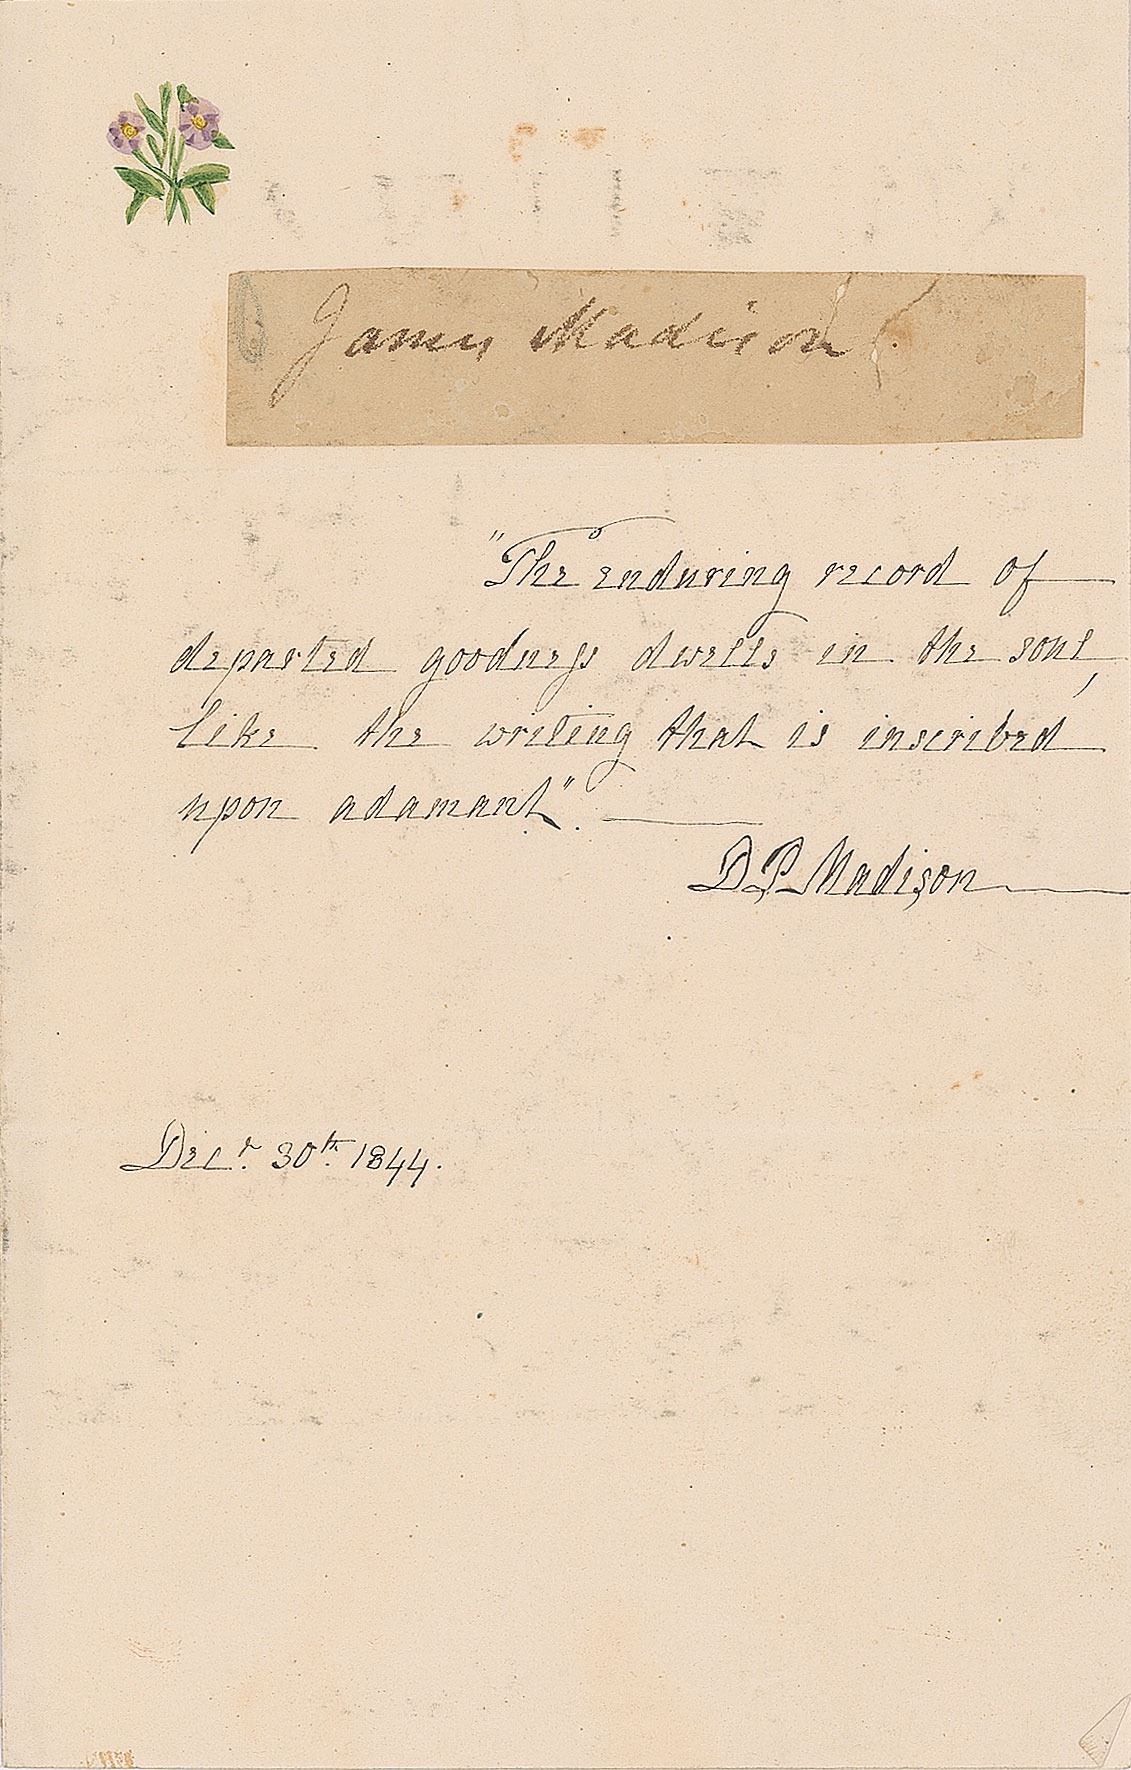 James Madison
"The enduring record of
departed goodness dwells in the soul,
like the writing that is inscribed
upon adamant".
D. P. Madison
Decr. 30th. 1844.